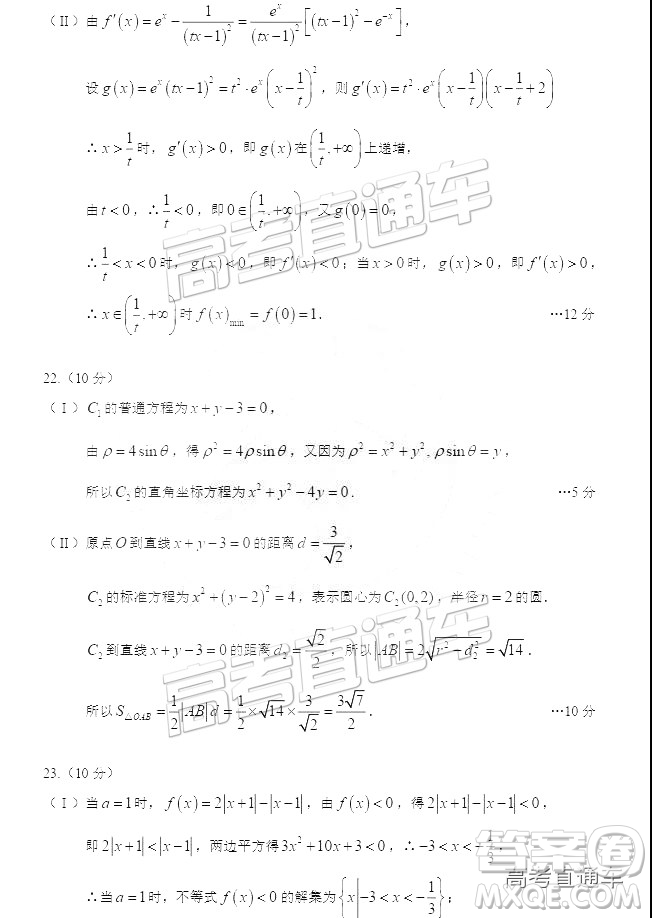 (Ⅱ) 由 f′(x)=e^x−1/(tx−1)^2=e^x/(tx−1)^2[(tx−1)^2−e^{−x}],
设 g(x)=e^x(tx−1)^2=t^2·e^x(x−1/t)^2, 则 g′(x)=t^2·e^x(x−1/t)(x−1/t+2)
∴ x>1/t 时, g′(x)>0, 即 g(x) 在 (1/t.+∞) 上递增,
由 t<0, ∴ 1/t<0, 即 0∈(1/t.+∞), 又 g(0)=0,
∴ 1/t<x<0 时, g(x)<0, 即 f′(x)<0; 当 x>0 时, g(x)>0, 即 f′(x)>0,
∴ x∈(1/t.+∞) 时 f(x)_min=f(0)=1. …12 分
22.(10 分)
(Ⅰ) C_1 的普通方程为 x+y−3=0,
由 ρ=4sinθ, 得 ρ^2=4ρsinθ, 又因为 ρ^2=x^2+y^2, ρsinθ=y,
所以 C_2 的直角坐标方程为 x^2+y^2−4y=0. …5 分
(Ⅱ) 原点 O 到直线 x+y−3=0 的距离 d=3/√2,
C_2 的标准方程为 x^2+(y−2)^2=4, 表示圆心为 C_2(0,2), 半径 r=2 的圆.
C_2 到直线 x+y−3=0 的距离 d_2=√2/2, 所以 |AB|=2√(r^2−d_2^2)=√14.
所以 S_△OAB=1/2|AB|d=1/2×√14×3/√2=3√7/2. …10 分
23.(10 分)
(Ⅰ) 当 a=1 时, f(x)=2|x+1|−|x−1|, 由 f(x)<0, 得 2|x+1|−|x−1|<0,
即 2|x+1|<|x−1|, 两边平方得 3x^2+10x+3<0, ∴ −3<x<−1/3.
∴ 当 a=1 时, 不等式 f(x)<0 的解集为 {x|−3<x<−1/3};
高考直通车
高考直通车
答案圈
高考直通车